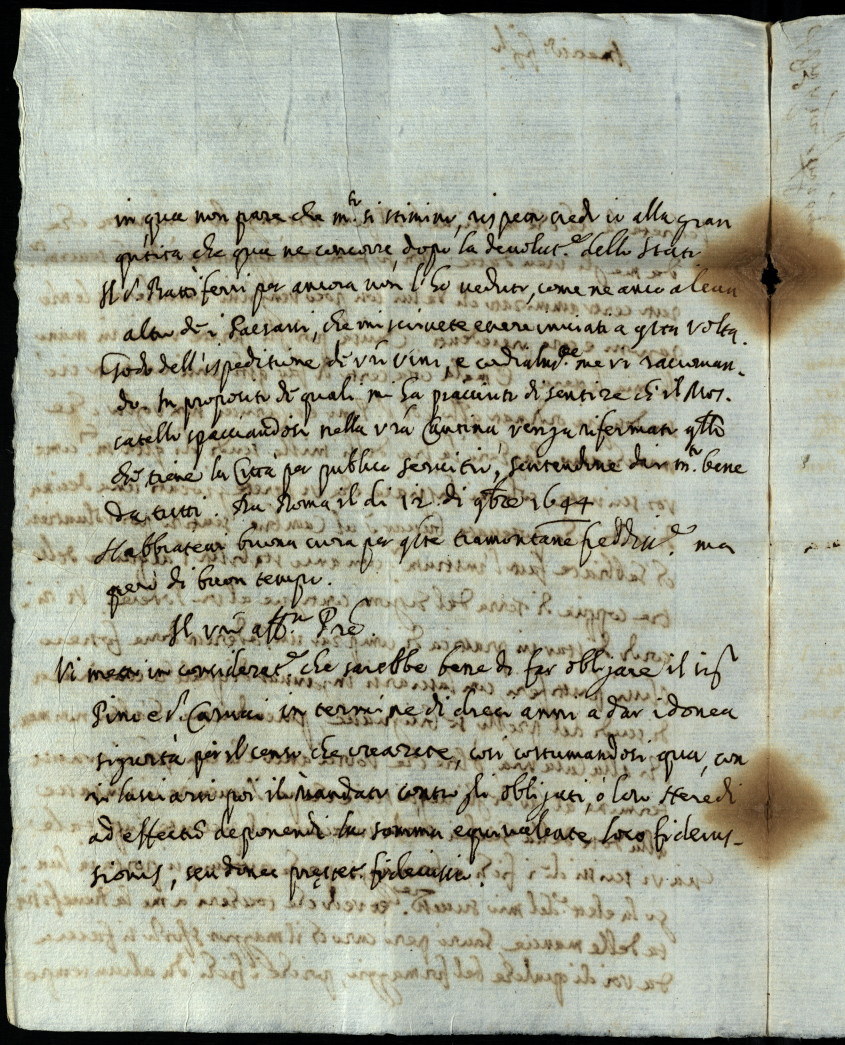 in qua non pare che m.to si stimino, rispetto cred' io alla gran
che qua ne concorre, dopo la devolut.e dello Stato
Il S. Battiferri per ancora non l'ho veduto, come ne anco alcun
altro de i Paesani, che mi scrivete essere inviati a q.ta volta.
Godo dell'ispeditione de vri vini, e cordialm.te me ne racoman-
do. In proposito de quali mi ha piaciuto di sentire ch' il Mos-
catello spacciandosi nella vra Cantina venga rifermato q.llo
che tiene la Città per publico servitio, sentendone dar m.to bene
da tutti. Da Roma il dì 12 di 9bre 1644
Habbiatevi buona cura per q.te tramontane fredd.me ma
però di buon tempo.
Il vro aff.mo Pre.
Vi metto in considerat.e che sarebbe bene di far obligare il
Pino e S. in termine di dieci anni a dar idonea
sigurtà per il censo che crearete, così costumandosi qua, con
rilasciarsi poi il Mandato contro gli obligati, o loro Heredi
ad effectū deponendi la somma equivalente loco fideius-
sionis, seu donec prestet fideiussio.